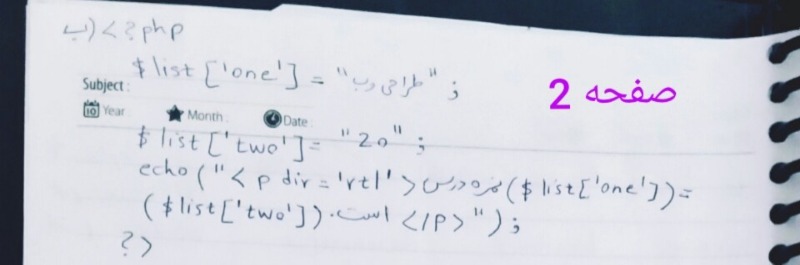 ب) <?php
$list ['one'] = "طراحی وب" ;
صفحه 2
Subject :
Year Month : Date :
$list ['two'] = "20" ;
echo ("<p dir = 'rtl' > نمره درس ($list['one']) =
($list['two']) . است </p>") ;
?>